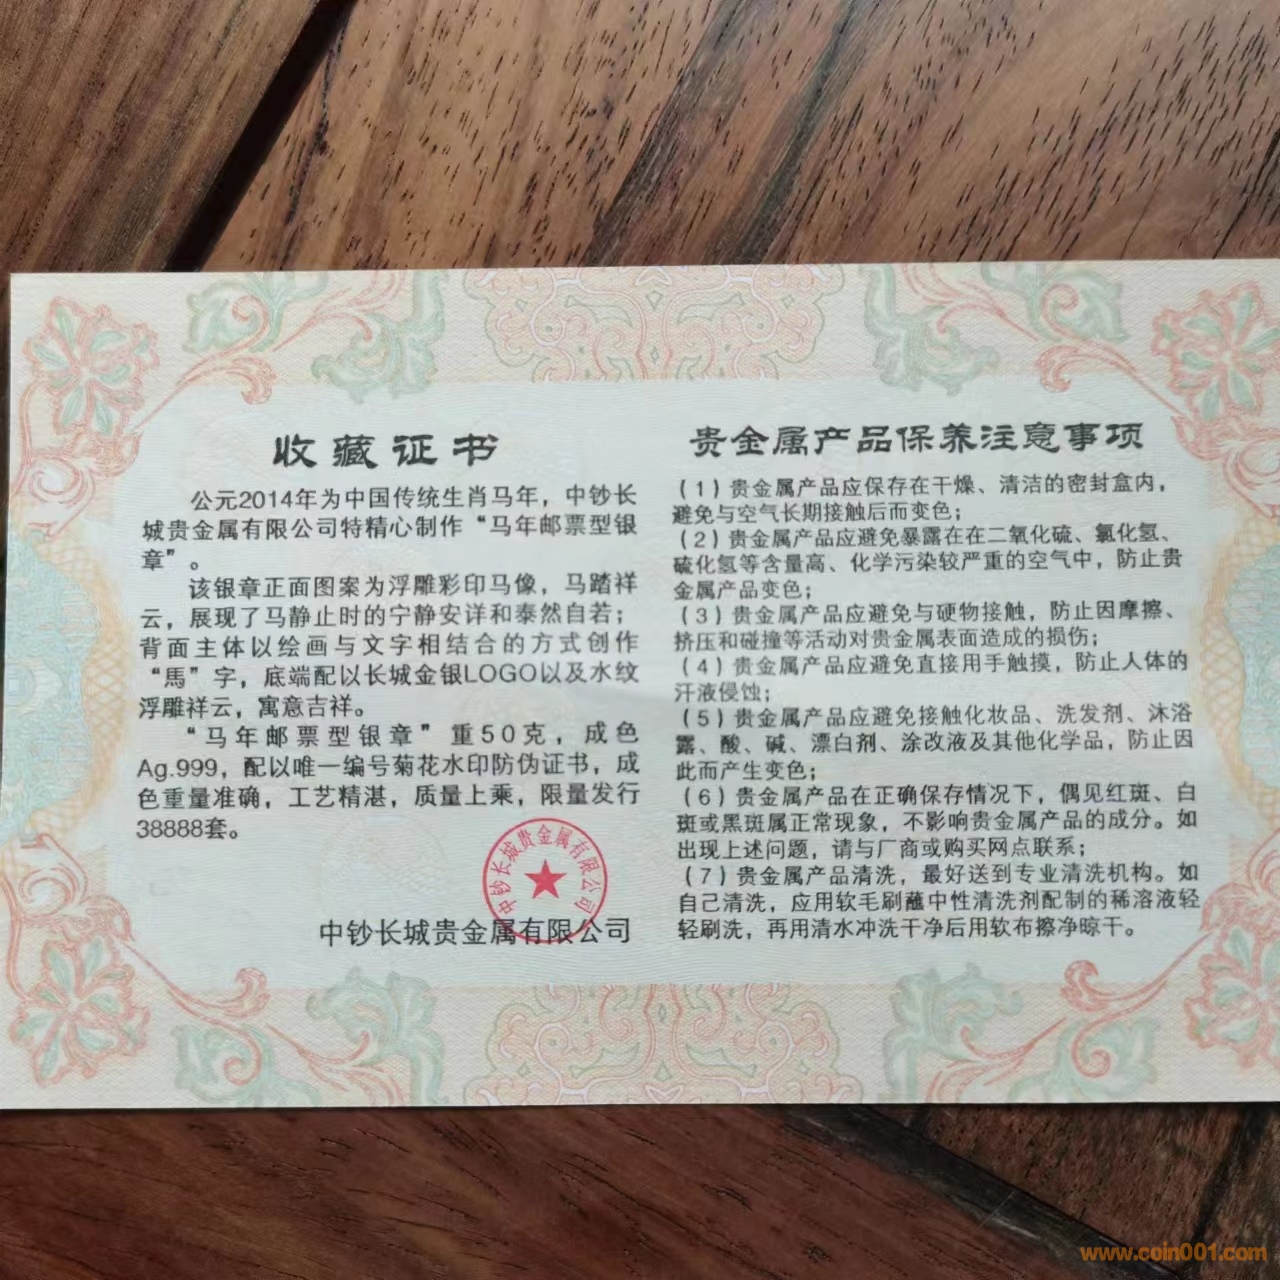 收藏证书
公元2014年为中国传统生肖马年，中钞长
城贵金属有限公司特精心制作“马年邮票型银
章”。
该银章正面图案为浮雕彩印马像，马踏祥
云，展现了马静止时的宁静安详和泰然自若；
背面主体以绘画与文字相结合的方式创作
“馬”字，底端配以长城金银LOGO以及水纹
浮雕祥云，寓意吉祥。
“马年邮票型银章”重50克，成色
Ag.999，配以唯一编号菊花水印防伪证书，成
色重量准确，工艺精湛，质量上乘，限量发行
38888套。
中钞长城贵金属有限公司
中钞长城贵金属有限公司
贵金属产品保养注意事项
（1）贵金属产品应保存在干燥、清洁的密封盒内，
避免与空气长期接触后而变色；
（2）贵金属产品应避免暴露在在二氧化硫、氯化氢、
硫化氢等含量高、化学污染较严重的空气中，防止贵
金属产品变色；
（3）贵金属产品应避免与硬物接触，防止因摩擦、
挤压和碰撞等活动对贵金属表面造成的损伤；
（4）贵金属产品应避免直接用手触摸，防止人体的
汗液侵蚀；
（5）贵金属产品应避免接触化妆品、洗发剂、沐浴
露、酸、碱、漂白剂、涂改液及其他化学品，防止因
此而产生变色；
（6）贵金属产品在正确保存情况下，偶见红斑、白
斑或黑斑属正常现象，不影响贵金属产品的成分。如
出现上述问题，请与厂商或购买网点联系；
（7）贵金属产品清洗，最好送到专业清洗机构。如
自己清洗，应用软毛刷蘸中性清洗剂配制的稀溶液轻
轻刷洗，再用清水冲洗干净后用软布擦净晾干。
www.coin001.com